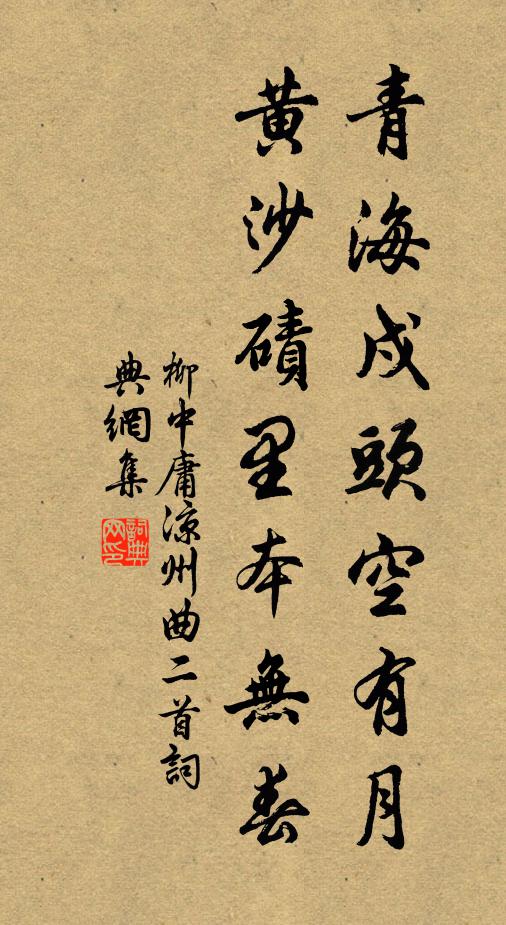 青海戍頭空有月
黄沙磧里本無春
柳中庸凉州曲二首詞
典網集
詞典
网印